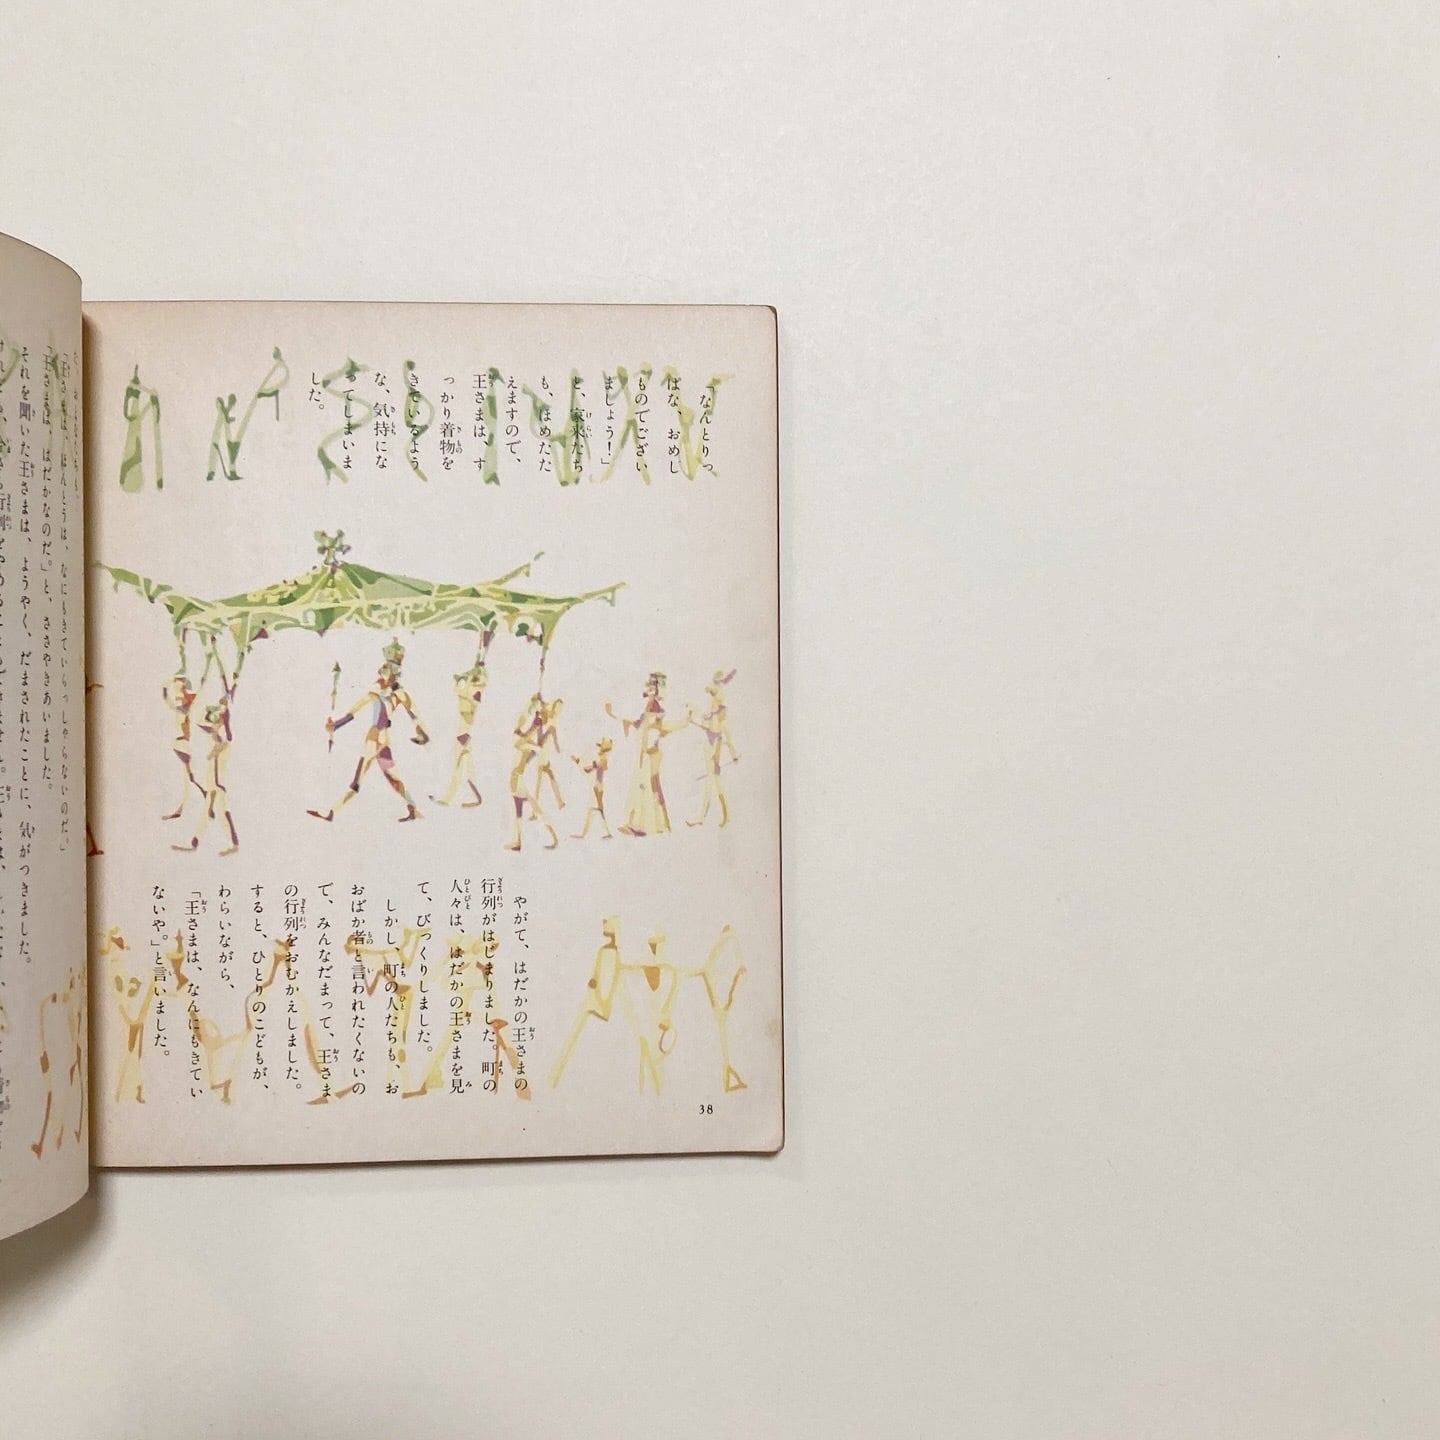 「なんとりっ
ぱな、おめし
ものでござい
ましょう！」
と、家来たち
も、ほめたた
えますので、
王さまは、す
っかり着物を
きているよう
な、気持にな
ってしまいま
した。
やがて、はだかの王さまの
行列がはじまりました。町の
人々は、はだかの王さまを見
て、びっくりしました。
しかし、町の人たちも、お
おばか者と言われたくないの
で、みんなだまって、王さま
の行列をおむかえしました。
すると、ひとりのこどもが、
わらいながら、
「王さまは、なんにもきてい
ないや。」と言いました。
38
「王さまは、ほんとうは、なにもきていらっしゃらないのだ。」
「王さまは、はだかなのだ。」と、ささやきあいました。
それを聞いた王さまは、ようやく、だまされたことに、気がつきました。